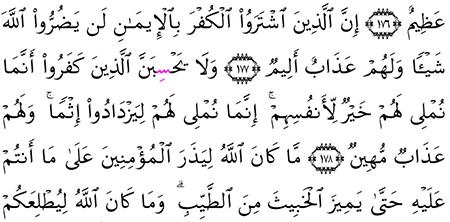 عَظِيمٌ ﴿١٧٦﴾ إِنَّ ٱلَّذِينَ ٱشْتَرَوُا۟ ٱلْكُفْرَ بِٱلْإِيمَٰنِ لَن يَضُرُّوا۟ ٱللَّهَ
شَيْـًٔا وَلَهُمْ عَذَابٌ أَلِيمٌ ﴿١٧٧﴾ وَلَا يَحْسِبَنَّ ٱلَّذِينَ كَفَرُوٓا۟ أَنَّمَا
نُمْلِى لَهُمْ خَيْرٌ لِّأَنفُسِهِمْ ۚ إِنَّمَا نُمْلِى لَهُمْ لِيَزْدَادُوٓا۟ إِثْمًا ۚ وَلَهُمْ
عَذَابٌ مُّهِينٌ ﴿١٧٨﴾ مَّا كَانَ ٱللَّهُ لِيَذَرَ ٱلْمُؤْمِنِينَ عَلَىٰ مَآ أَنتُمْ
عَلَيْهِ حَتَّىٰ يَمِيزَ ٱلْخَبِيثَ مِنَ ٱلطَّيِّبِ ۗ وَمَا كَانَ ٱللَّهُ لِيُطْلِعَكُمْ